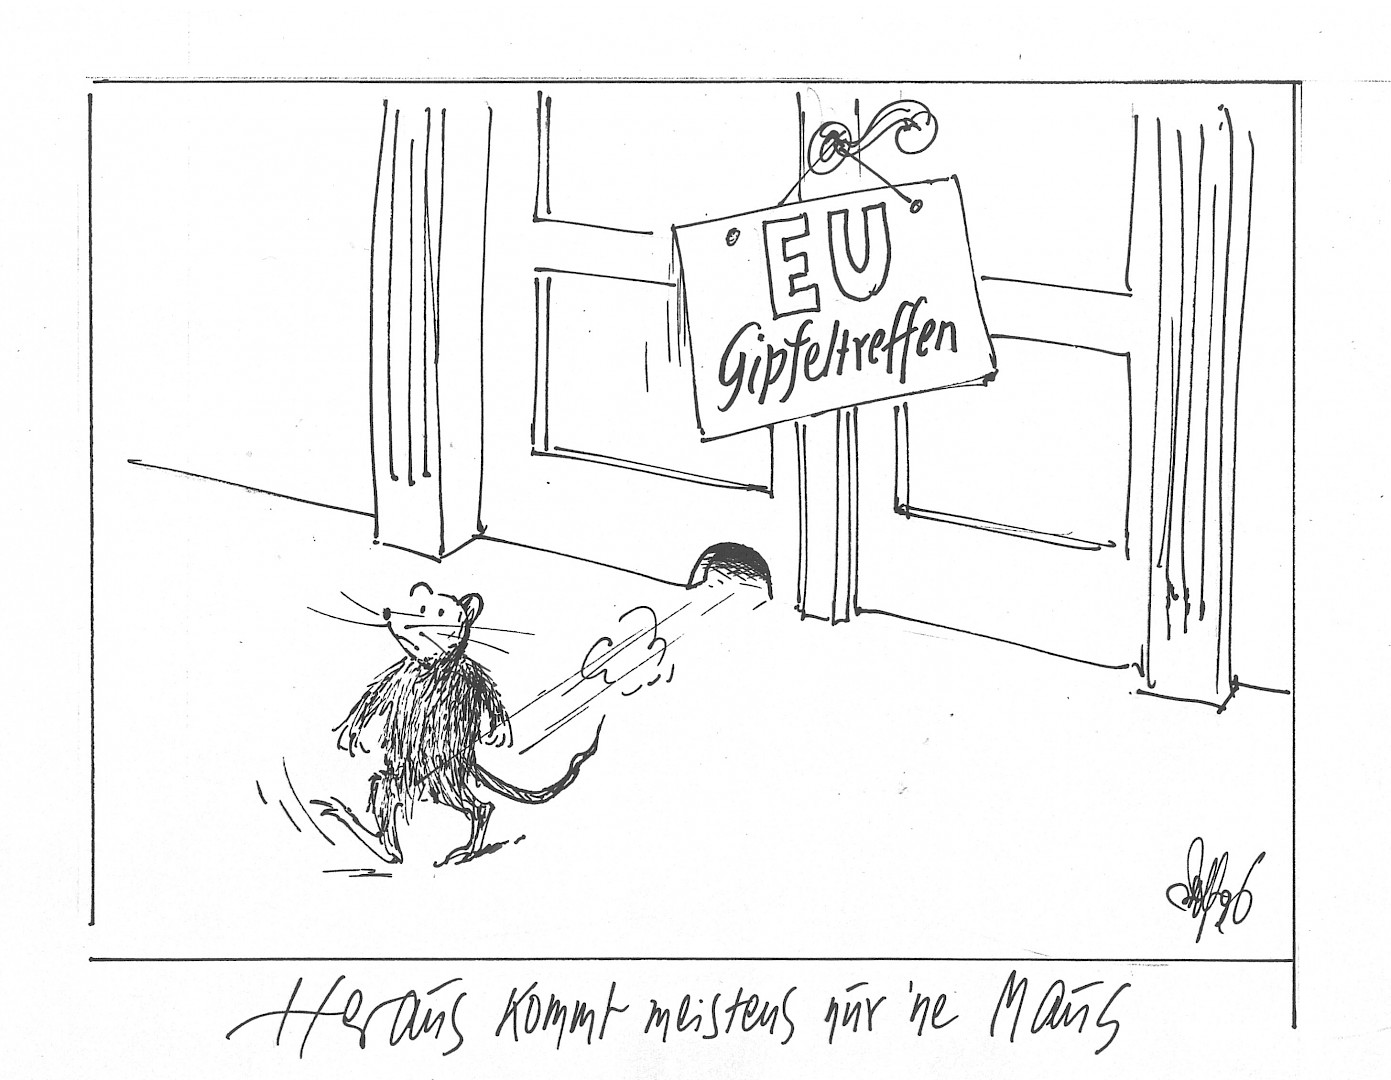 EU
Gipfeltreffen
Heraus kommt meistens nur 'ne Maus